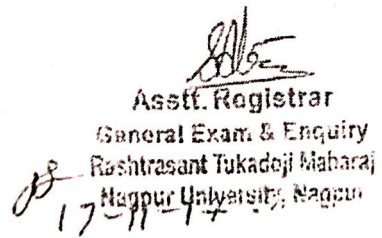 Asstt. Registrar
General Exam & Enquiry
Rashtrasant Tukadoji Maharaj
Nagpur University, Nagpur